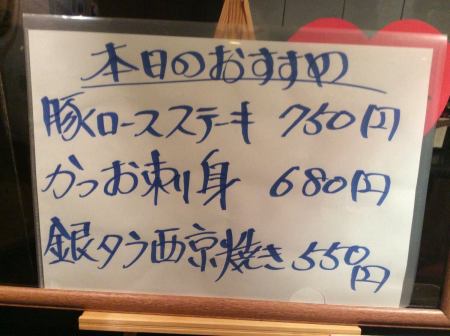 本日のおすすめ
豚ロースステーキ 750円
かつお刺身 680円
銀タラ西京焼き 550円